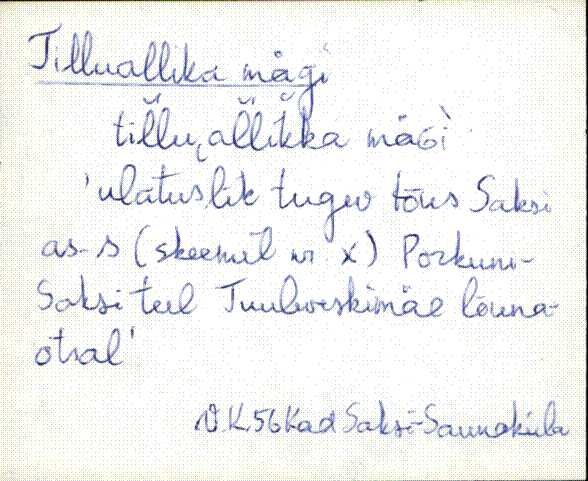 Tilluallika mägi
tillu allikka mäGi
'ulatuslik tugev tõus Saksi
as-s (skeemil nr. x) Porkuni-
Saksi teel Tuuleveskimäe lõuna-
otsal'
V.K. 56 Kad Saksi-Saunaküla